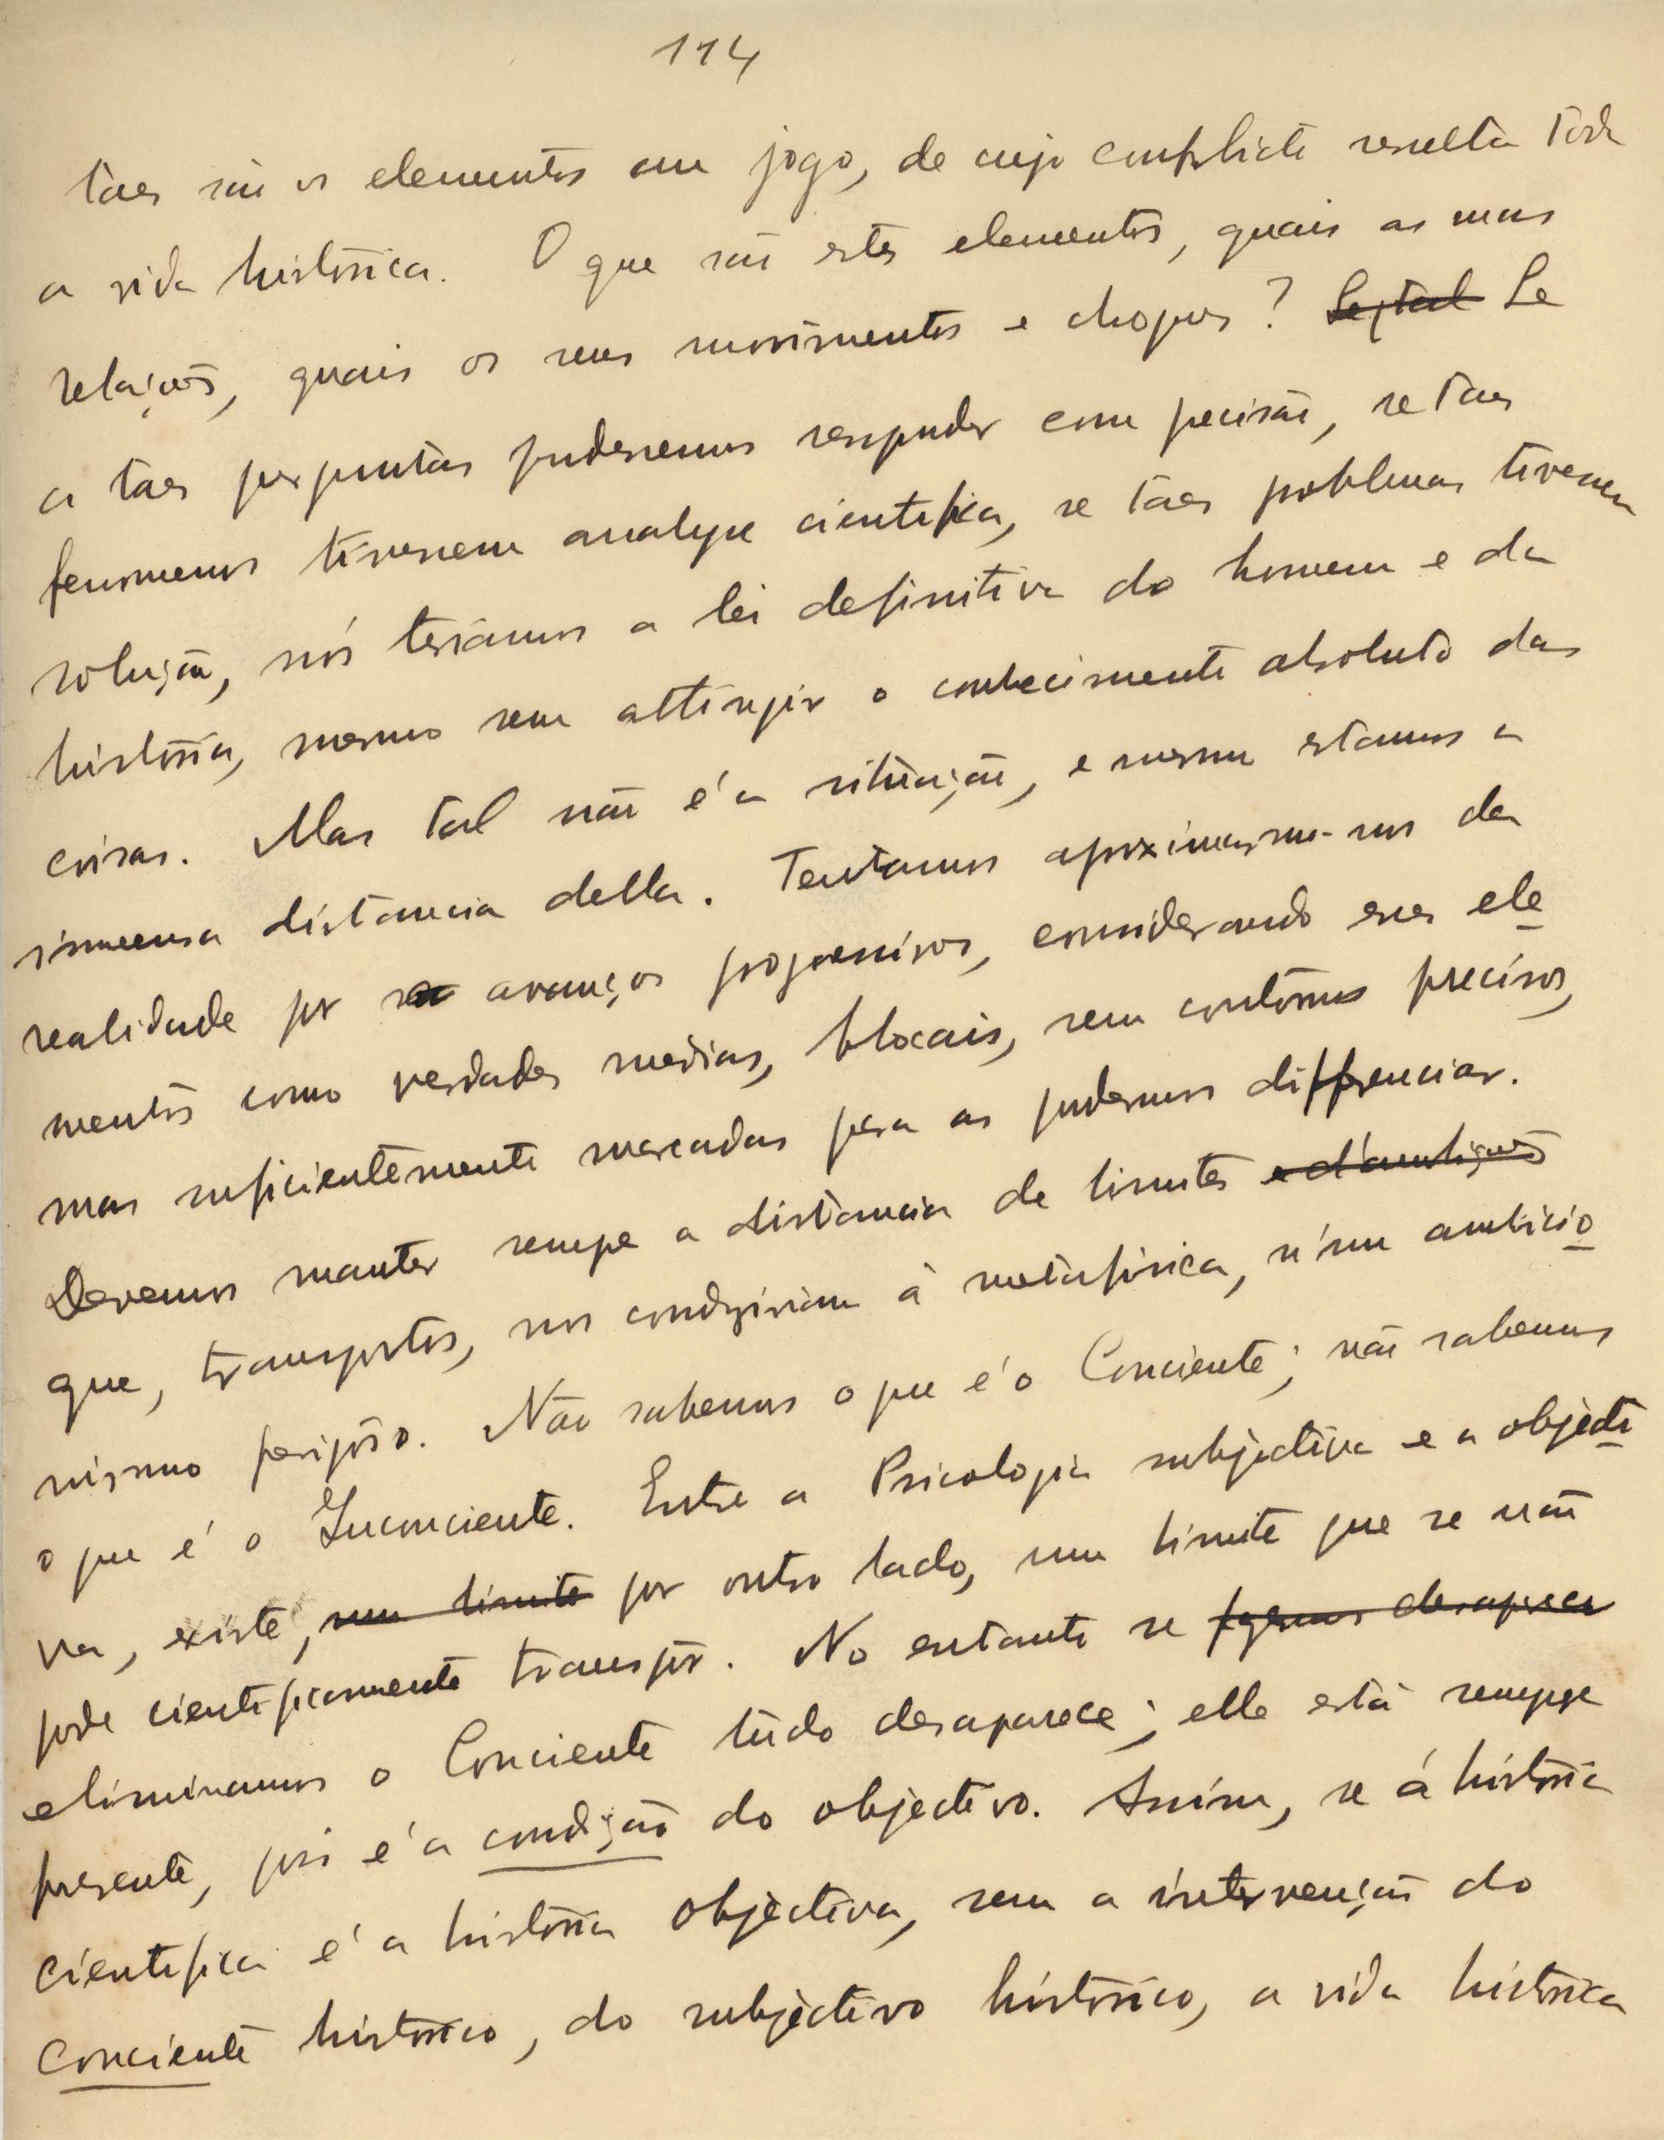 114
taes são os elementos em jogo, de cujo conflicto resulta toda
a vida histórica. O que são estes elementos, quais as suas
relações, quais os seus movimentos e choques? Se tal Se
a taes perguntas pudessemos responder com precisão, se taes
fenomenos tivessem analyse cientifica, se taes problemas tivessem
solução, nós teriamos a lei definitiva do homem e da
história, mesmo sem attingir o conhecimento absoluto das
coisas. Mas tal não é a situação, e mesmo estamos a
immensa distancia della. Tentamos aproximarmo-nos da
realidade por avanços progressivos, considerando esses ele
mentos como verdades medias, blocais, sem contornos precisos,
mas suficientemente marcadas para as podermos differenciar.
Devemos manter sempre a distancia de limites
que, transpostos, nos conduziriam à metafisica, n'um ambicio
nismo perigoso. Não sabemos o que é o Conciente; não sabemos
o que é o Inconciente. Entre a Psicologia subjectiva e a objecti
va, existe, um limite por outro lado, um limite que se não
pode cientificamente transpôr. No entanto se fizermos desaparecer
eliminamos o Conciente tudo desaparece; elle está sempre
presente, pois é a condição do objectivo. Assim, se á história
cientifica é a história objectiva, sem a intervenção do
conciente historico, do subjectivo histórico, a vida histórica